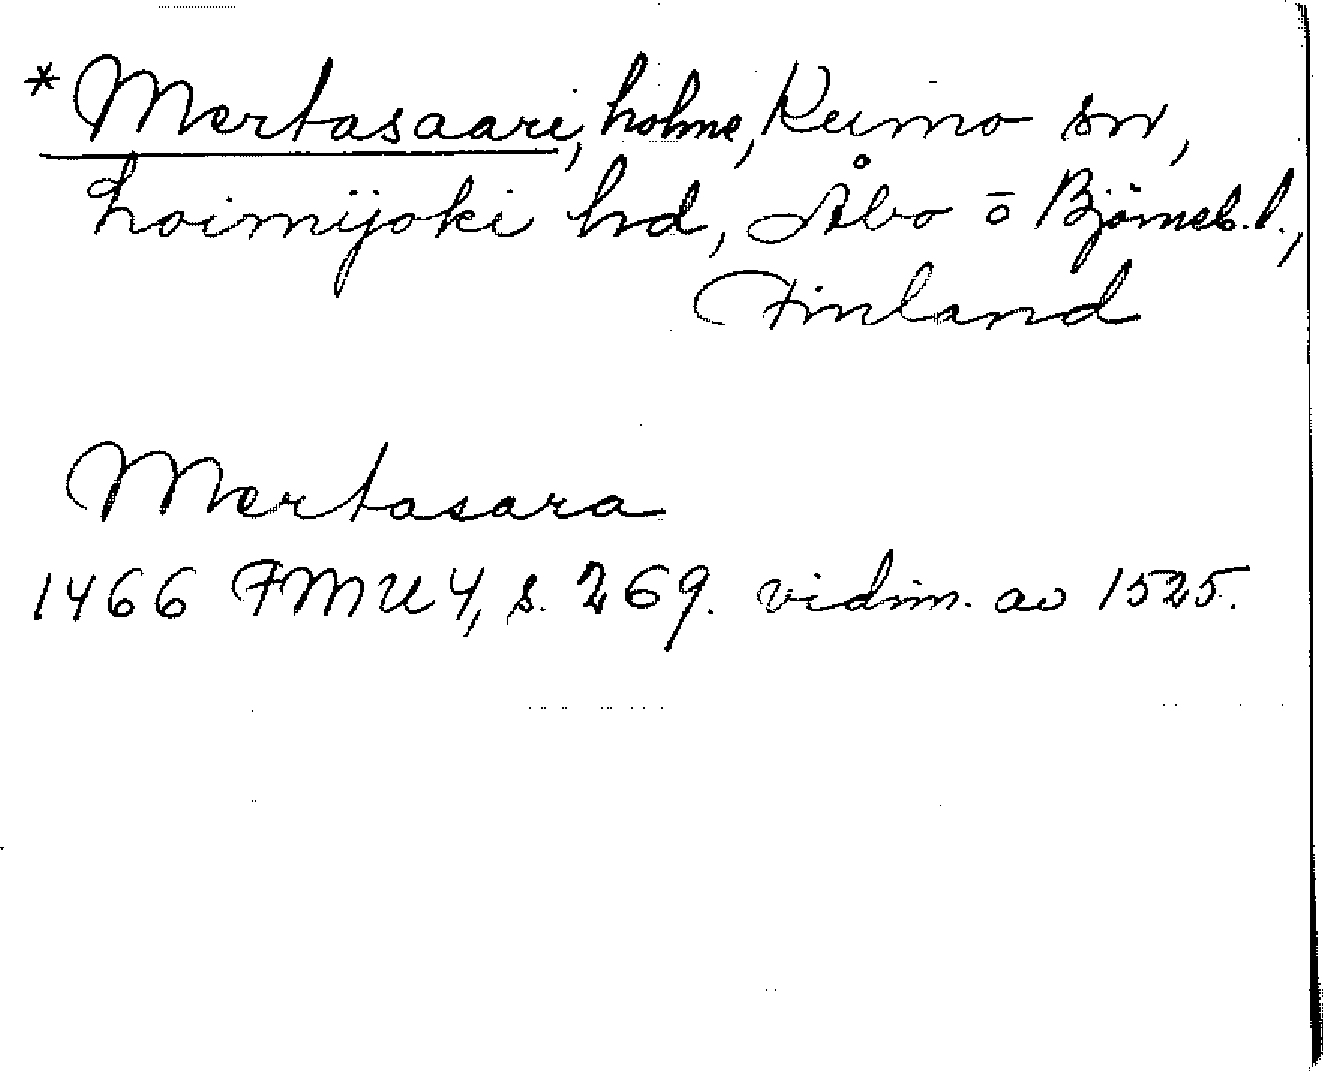 *Mertasaari, holme, Kumo sn,
Loimijoki hd, Åbo o Björneb. l.,
Finland
Mertasara
1466 FMU 4, s. 269. vidim. av 1525.